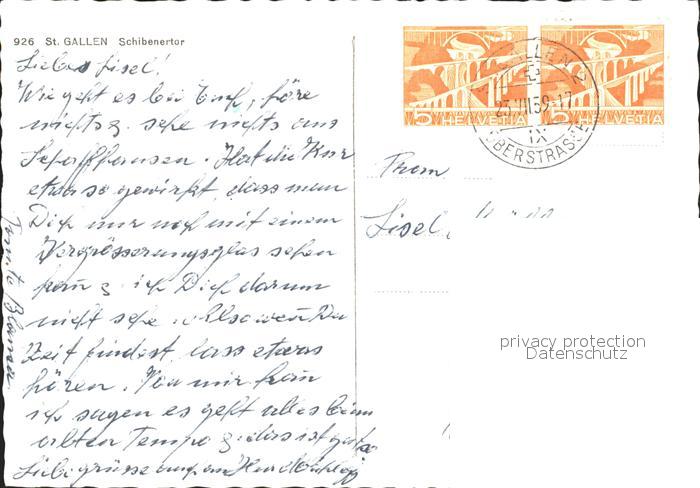 926 St. GALLEN Schibenertor
Liebes Lisel!
Wie geht es bei Euch, höre
nichts & sehe nichts aus
Schaffhausen. Hat die Kur
etwa so gewirkt, dass man
Dich nur noch mit einem
Vergrösserungsglas sehen
kann & ich Dich darum
nicht sehe. Also wenn Du
Zeit findest, lass etwas
hören. Von mir kann
ich sagen es geht alles beim
alten Tempo & das ist gut
Liebe grüsse auch an
Tante
HELVETIA 5
5 HELVETIA
ST. GALLEN 2
23.VII.59-17
IX
OBERSTRASSE
From
Lisel
privacy protection
Datenschutz